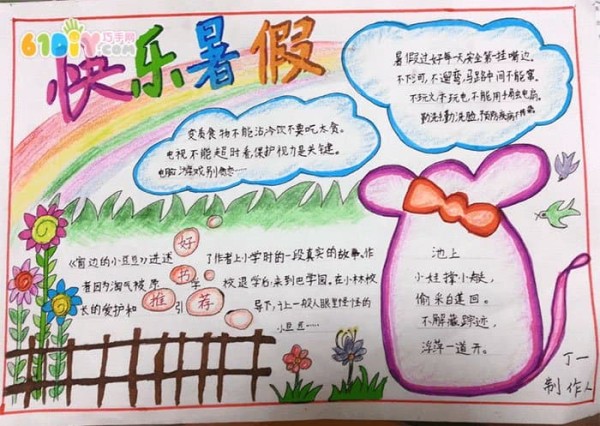 61DIY巧手网
.com
快乐暑假
暑假过好每一天安全第一挂嘴边。
不下河,不遛弯,马路中间不能窜。
不玩火不玩电,不能用手
勤洗手勤洗脸,预防疾病不
变质食物不能沾冷饮不要吃太贪。
电视不能超时看保护视力是关键。
电脑游戏别偷恋……
《窗边的小豆豆》讲述了作者上小学时的一段真实的故事。作
者因为淘气被原学校退学后,来到巴学园。在小林校
长的爱护和引导下,让一般人眼里怪怪的
小豆豆……
好
书
推
荐
池上
小娃撑小艇,
偷采白莲回。
不解藏踪迹,
浮萍一道开。
丁一
制作人